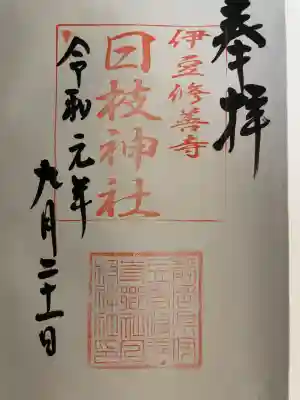 奉拝
伊豆修善寺
日枝神社
令和元年
九月二十一日